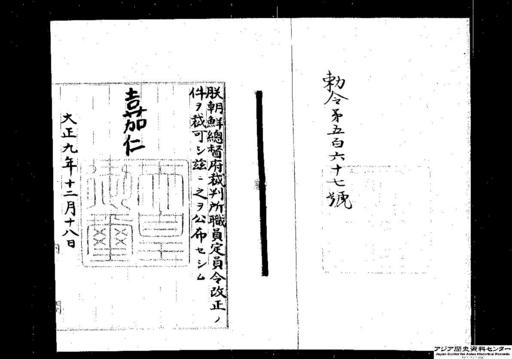 勅令第五百六十七號
朕朝鮮總督府裁判所職員定員令改正ノ
件ヲ裁可シ玆ニ之ヲ公布セシム
嘉仁
大正九年十二月十八日
アジア歴史資料センター
Japan Center for Asian Historical Records